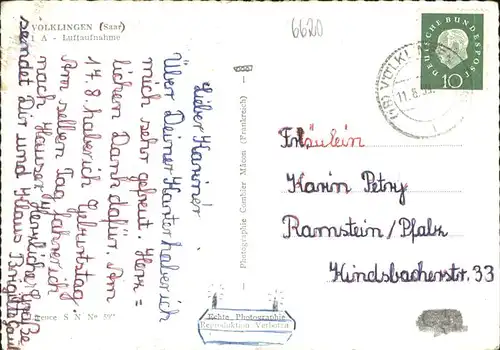 VÖLKLINGEN (Saar)
- A - Luftaufnahme
6620
DEUTSCHE BUNDESPOST
10
VÖLKL
11.8.59.
Lieber Karin!
Über Deine Karte habe ich
mich sehr gefreut. Herz=
lichen Dank dafür. Am
17.8. habe ich Geburtstag.
Am selben Tag fahre ich
nach Hause. Herzliche Grüße
sendet Dir und Klaus Brigitte
Photographie Combier Mâcon (Frankreich)
Fräulein
Karin Petry
Ramstein/Pfalz
Kindsbacherstr. 33
Echte Photographie
Reproduktion Verboten